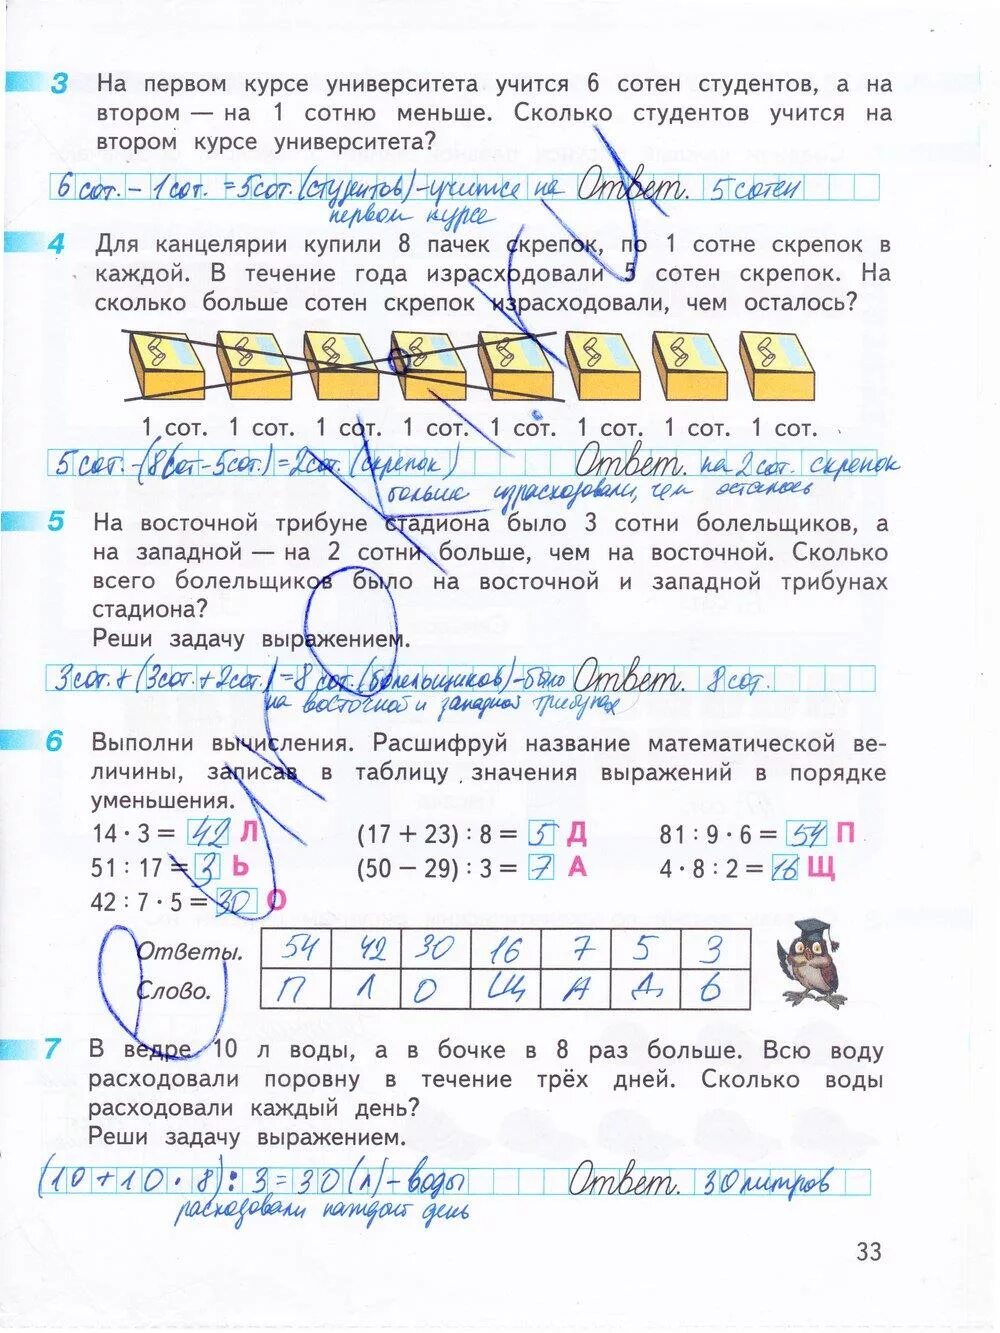 3 На первом курсе университета учится 6 сотен студентов, а на
втором — на 1 сотню меньше. Сколько студентов учится на
втором курсе университета?
6 сот. - 1 сот. = 5 сот. (студентов) - учится на Ответ. 5 сотен
первом курсе
4 Для канцелярии купили 8 пачек скрепок, по 1 сотне скрепок в
каждой. В течение года израсходовали 5 сотен скрепок. На
сколько больше сотен скрепок израсходовали, чем осталось?
1 сот. 1 сот. 1 сот. 1 сот. 1 сот. 1 сот. 1 сот. 1 сот.
5 сот. - (8 сот - 5 сот.) = 2 сот. (скрепок) Ответ. на 2 сот. скрепок
больше израсходовали, чем осталось
5 На восточной трибуне стадиона было 3 сотни болельщиков, а
на западной — на 2 сотни больше, чем на восточной. Сколько
всего болельщиков было на восточной и западной трибунах
стадиона?
Реши задачу выражением.
3 сот. + (3 сот. + 2 сот.) = 8 сот. (болельщиков) - было Ответ. 8 сот.
на восточной и западной трибунах
6 Выполни вычисления. Расшифруй название математической ве-
личины, записав в таблицу значения выражений в порядке
уменьшения.
14 · 3 = 42 Л (17 + 23) : 8 = 5 Д 81 : 9 · 6 = 54 П
51 : 17 = 3 Ь (50 − 29) : 3 = 7 А 4 · 8 : 2 = 16 Щ
42 : 7 · 5 = 30 О
Ответы. 54 42 30 16 7 5 3
Слово. П Л О Щ А Д Ь
7 В ведре 10 л воды, а в бочке в 8 раз больше. Всю воду
расходовали поровну в течение трёх дней. Сколько воды
расходовали каждый день?
Реши задачу выражением.
(10 + 10 · 8) : 3 = 30 (л) - воды Ответ. 30 литров
расходовали каждый день
33